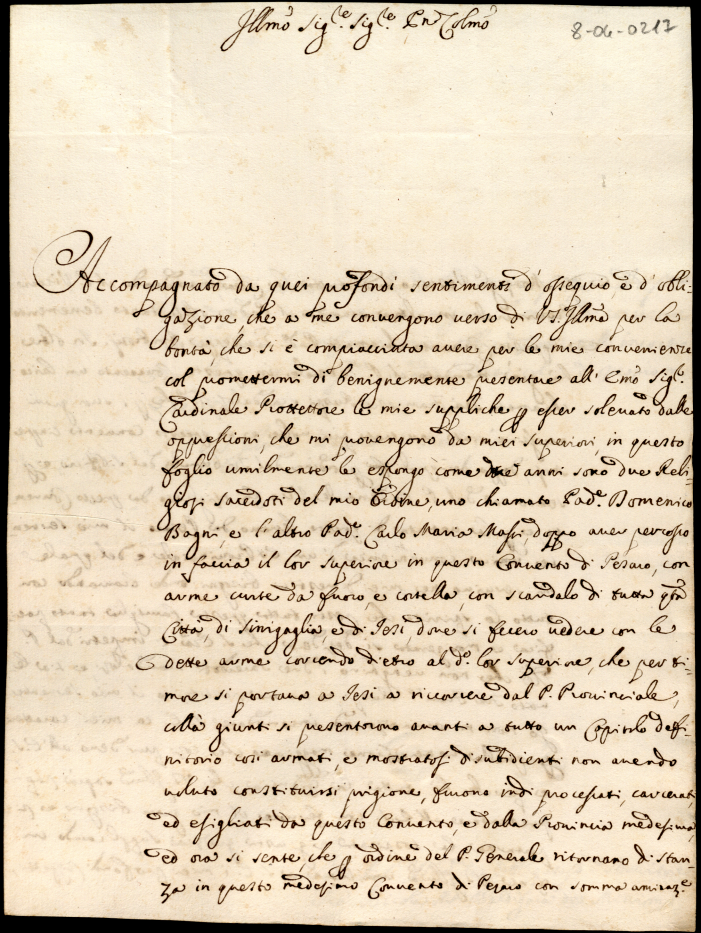 Illmo Sig.re Sig.re Pne Colmo
8-04-0217
Accompagnato da quei profondi sentimenti d'ossequio e d'obli-
gazione, che a me convengono verso di VS. Illma per la
bontà, che si è compiacciuta avere per le mie convenienze
col promettermi di benignemente presentare all' Emo Sig.re
Cardinale Prottettore le mie suppliche p esser solevato dalle
oppressioni, che mi provengono da miei superiori, in questo
foglio umilmente le espongo come due anni sono due Reli-
giosi sacerdoti del mio Ordine, uno chiamato Pad.e Domenico
Bagni, e l'altro Pad.e Carlo Maria Massi, doppo aver percosso
in faccia il lor superiore in questo Convento di Pesaro, con
arme curte da fuoco, e cortella, con scandalo di tutta qta
Città, di Sinigaglia, e di Jesi dove si fecero vedere con le
dette arme correndo dietro al do. lor superiore, che per ti-
more si portava a Jesi a ricorrere dal P. Provinciale,
colà giunti si presentorono avanti a tutto un Capitolo deffi-
nitorio così armati, e mostratosi disubidienti non avendo
voluto constituirsi prigione, furono indi processati, carcerati
ed esigliati da questo Convento, e dalla Provincia medesima,
ed ora si sente, che p ordine del P. Generale ritornano di stan-
za in questo medesimo Convento di Pesaro con somma amiraz.e